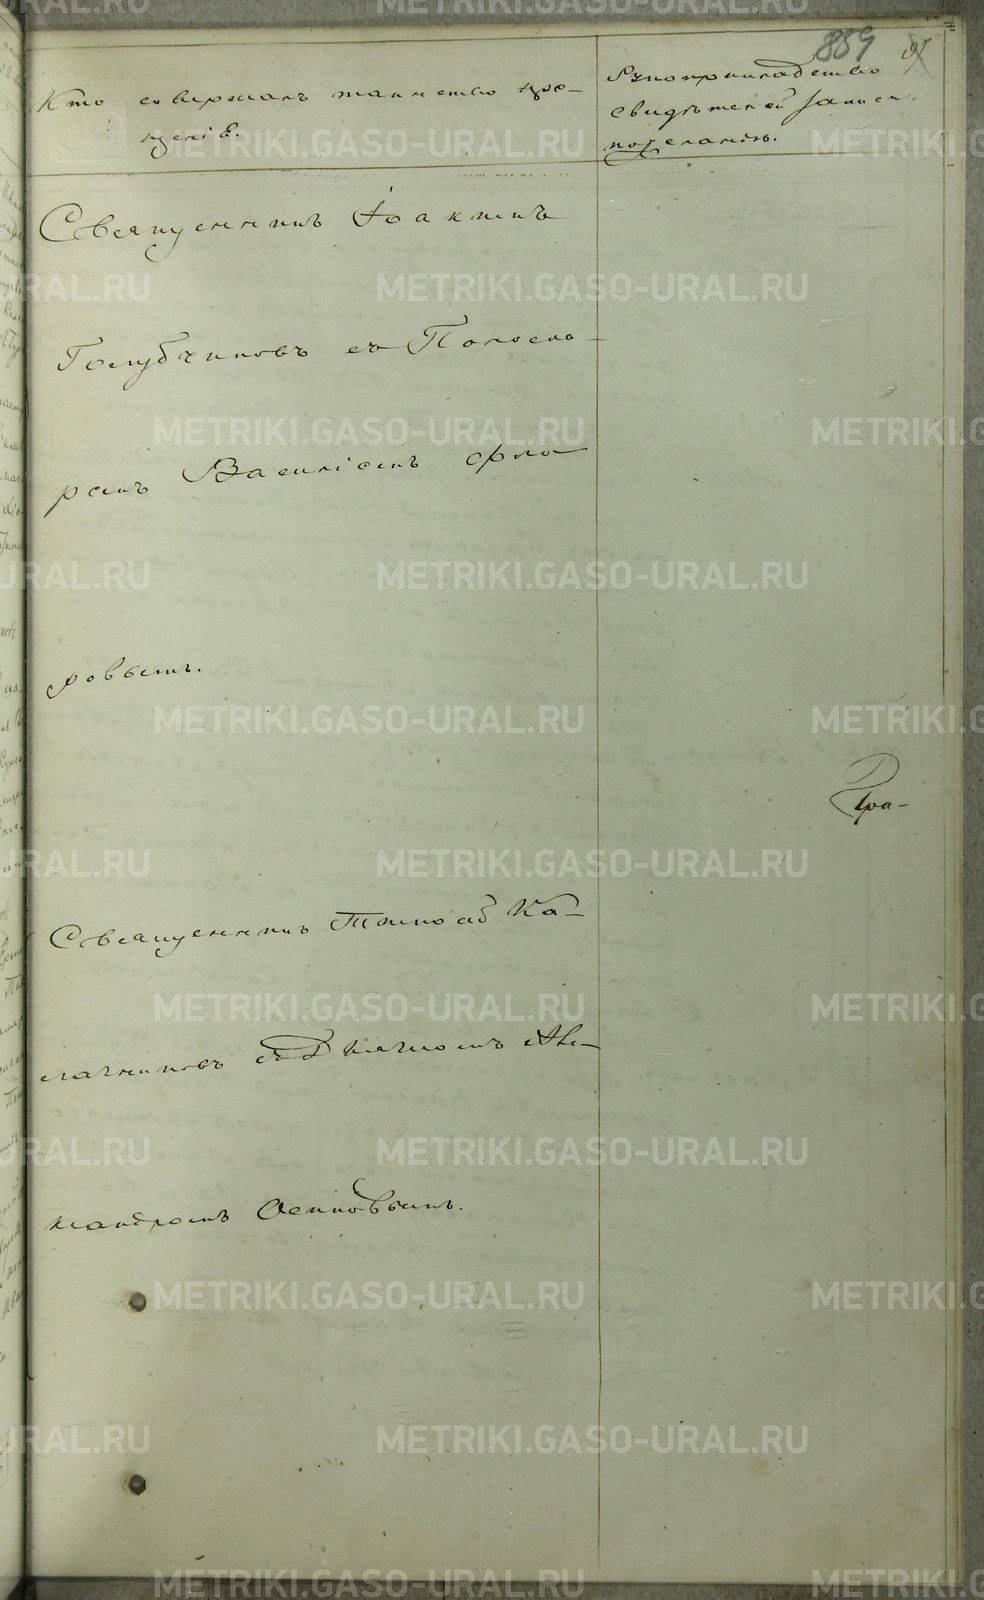 859
Кто совершалъ таинство кре-
щенiе.
Рукоприкладство
свидѣтелей записи
по желанію.
Священникъ Іоакимъ
Голубчиковъ съ Понома-
ремъ Василіемъ Фло-
ровымъ.
Гра-
Священникъ Тимофей Ка-
лачниковъ съ Дьячкомъ Але-
ксандромъ Осиповымъ.
METRIKI.GASO-URAL.RU